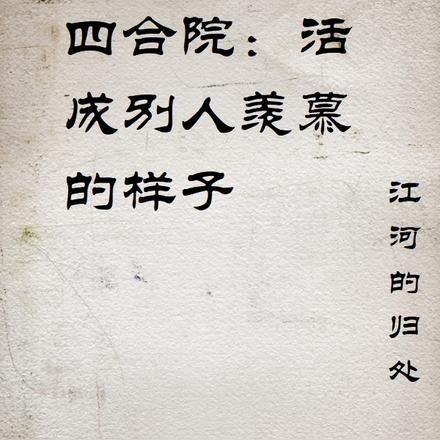 四合院：活
成别人羡慕
的样子
江河的归处